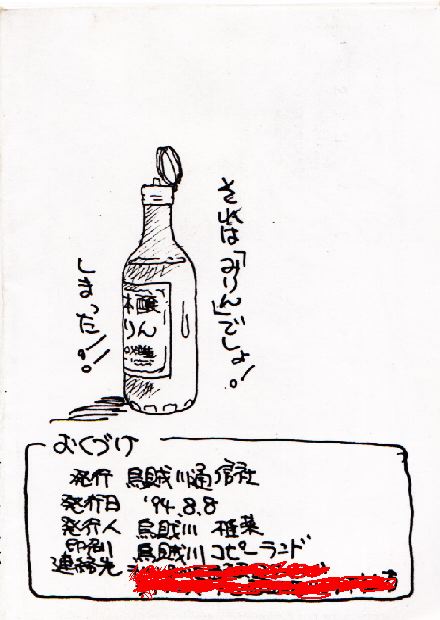 それは「みりん」でしょ!
しまった!!
本醸
りん
おくづけ
発行 烏賊川通信社
発行日 '94.8.8
発行人 烏賊川
印刷 烏賊川コピーランド
連絡先